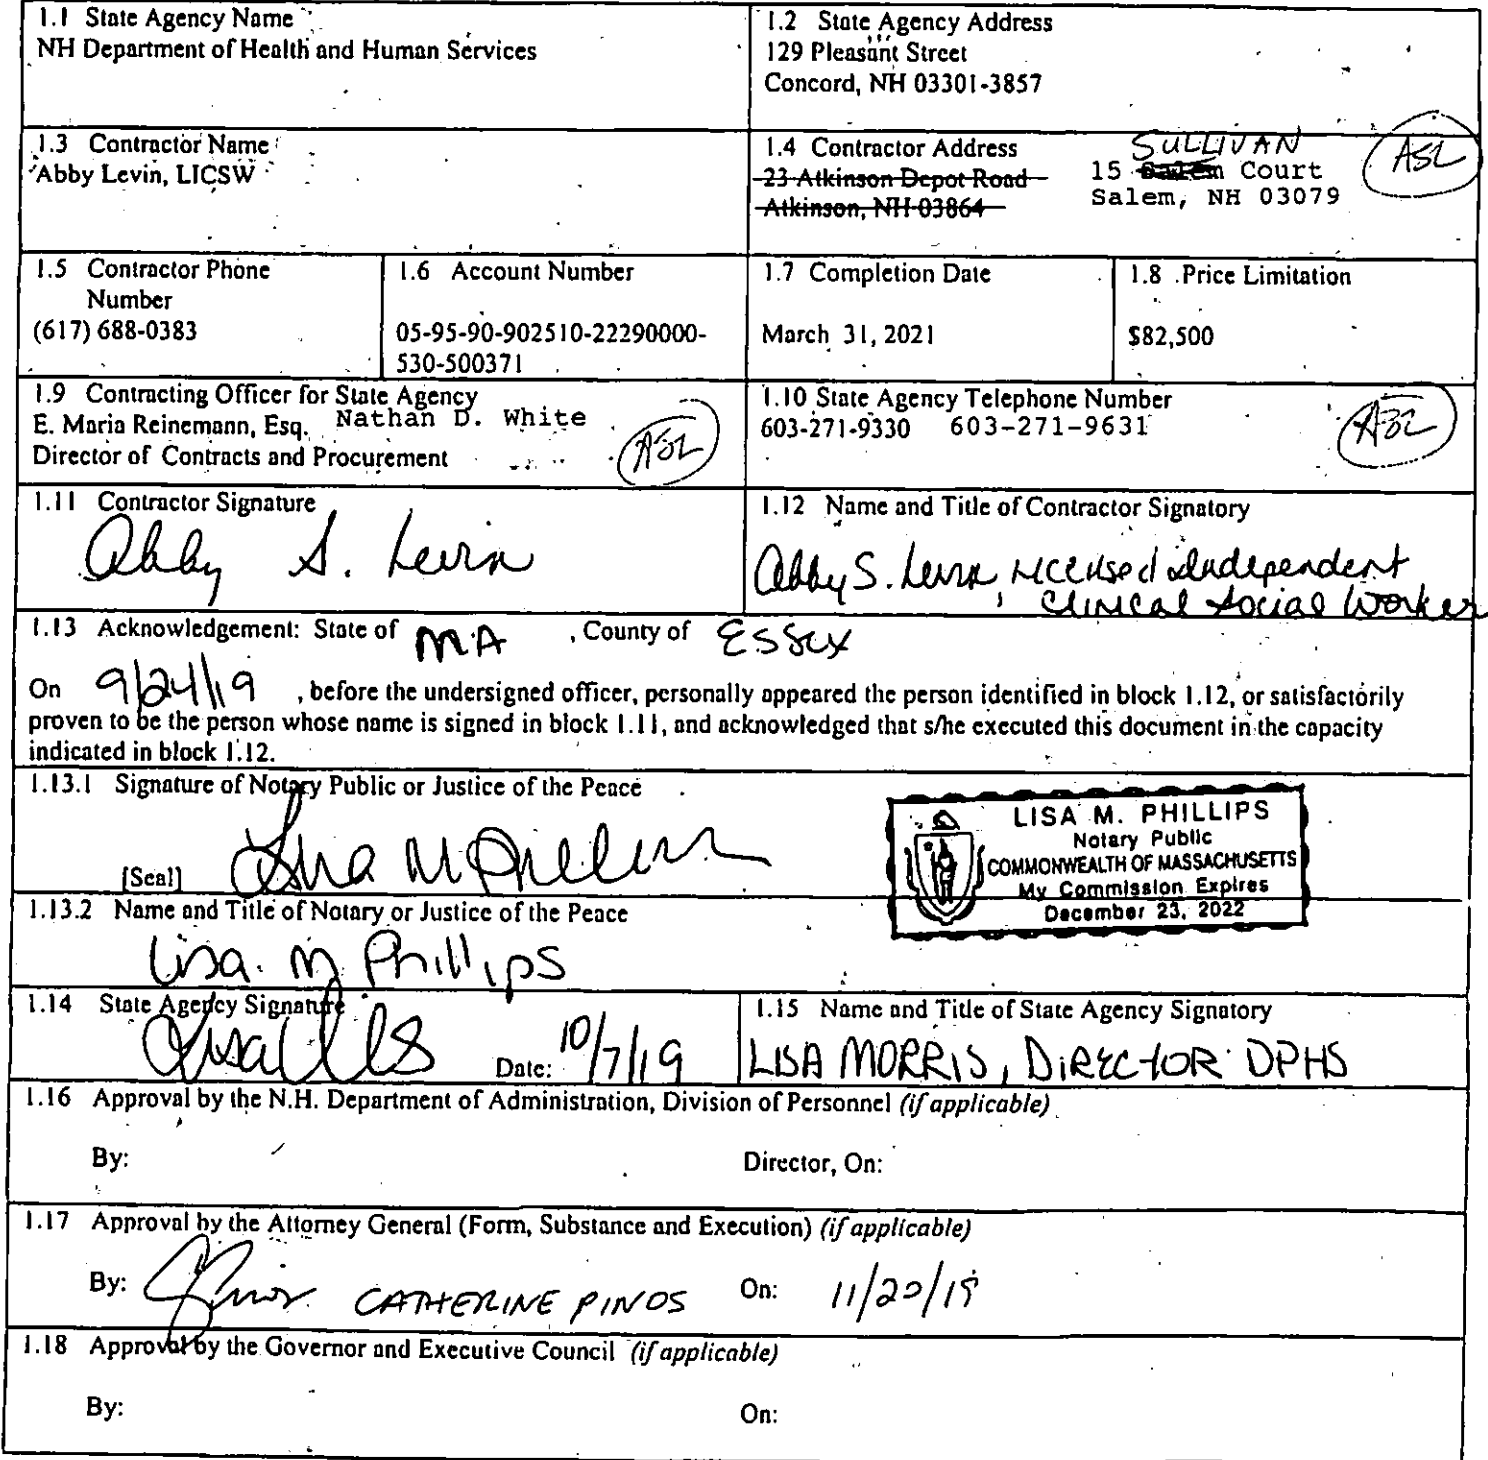 1.1 State Agency Name
NH Department of Health and Human Services
1.2 State Agency Address
129 Pleasant Street
Concord, NH 03301-3857
1.3 Contractor Name
Abby Levin, LICSW
1.4 Contractor Address
23 Atkinson Depot Road
Atkinson, NH 03864
SULLIVAN
15 Salem Court
Salem, NH 03079
ASL
1.5 Contractor Phone
Number
(617) 688-0383
1.6 Account Number
05-95-90-902510-22290000-
530-500371
1.7 Completion Date
March 31, 2021
1.8 Price Limitation
$82,500
1.9 Contracting Officer for State Agency
E. Maria Reinemann, Esq. Nathan D. White
Director of Contracts and Procurement
ASL
1.10 State Agency Telephone Number
603-271-9330 603-271-9631
ASL
1.11 Contractor Signature
Abby S. Levin
1.12 Name and Title of Contractor Signatory
Abby S. Levin, Licensed Independent
Clinical Social Worker
1.13 Acknowledgement: State of MA , County of Essex
On 9/24/19 , before the undersigned officer, personally appeared the person identified in block 1.12, or satisfactorily
proven to be the person whose name is signed in block 1.11, and acknowledged that s/he executed this document in the capacity
indicated in block 1.12.
1.13.1 Signature of Notary Public or Justice of the Peace
[Seal] Lisa M Phillips
LISA M. PHILLIPS
Notary Public
COMMONWEALTH OF MASSACHUSETTS
My Commission Expires
December 23, 2022
1.13.2 Name and Title of Notary or Justice of the Peace
Lisa M Phillips
1.14 State Agency Signature
Date: 10/7/19
1.15 Name and Title of State Agency Signatory
LISA MORRIS, DIRECTOR DPHS
1.16 Approval by the N.H. Department of Administration, Division of Personnel (if applicable)
By: Director, On:
1.17 Approval by the Attorney General (Form, Substance and Execution) (if applicable)
By: CATHERINE PINOS On: 11/20/19
1.18 Approval by the Governor and Executive Council (if applicable)
By: On: